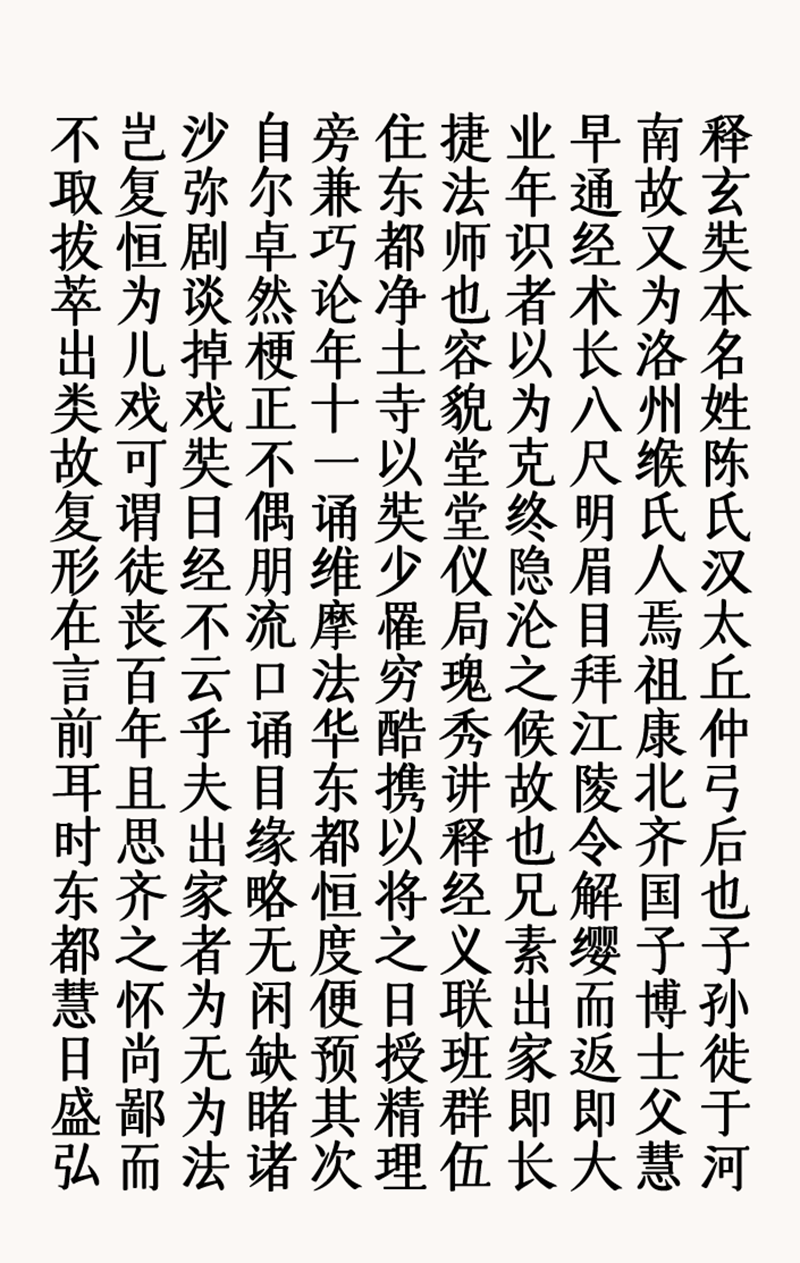 释玄奘本名姓陈氏汉太丘仲弓后也子孙徙于河
南故又为洛州缑氏人焉祖康北齐国子博士父慧
早通经术长八尺明眉目拜江陵令解缨而返即大
业年识者以为克终隐沦之候故也兄素出家即长
捷法师也容貌堂堂仪局瑰秀讲释经义联班群伍
住东都净土寺以奘少罹穷酷携以将之日授精理
旁兼巧论年十一诵维摩法华东都恒度便预其次
自尔卓然梗正不偶朋流口诵目缘略无闲缺睹诸
沙弥剧谈掉戏奘日经不云乎夫出家者为无为法
岂复恒为儿戏可谓徒丧百年且思齐之怀尚鄙而
不取拔萃出类故复形在言前耳时东都慧日盛弘